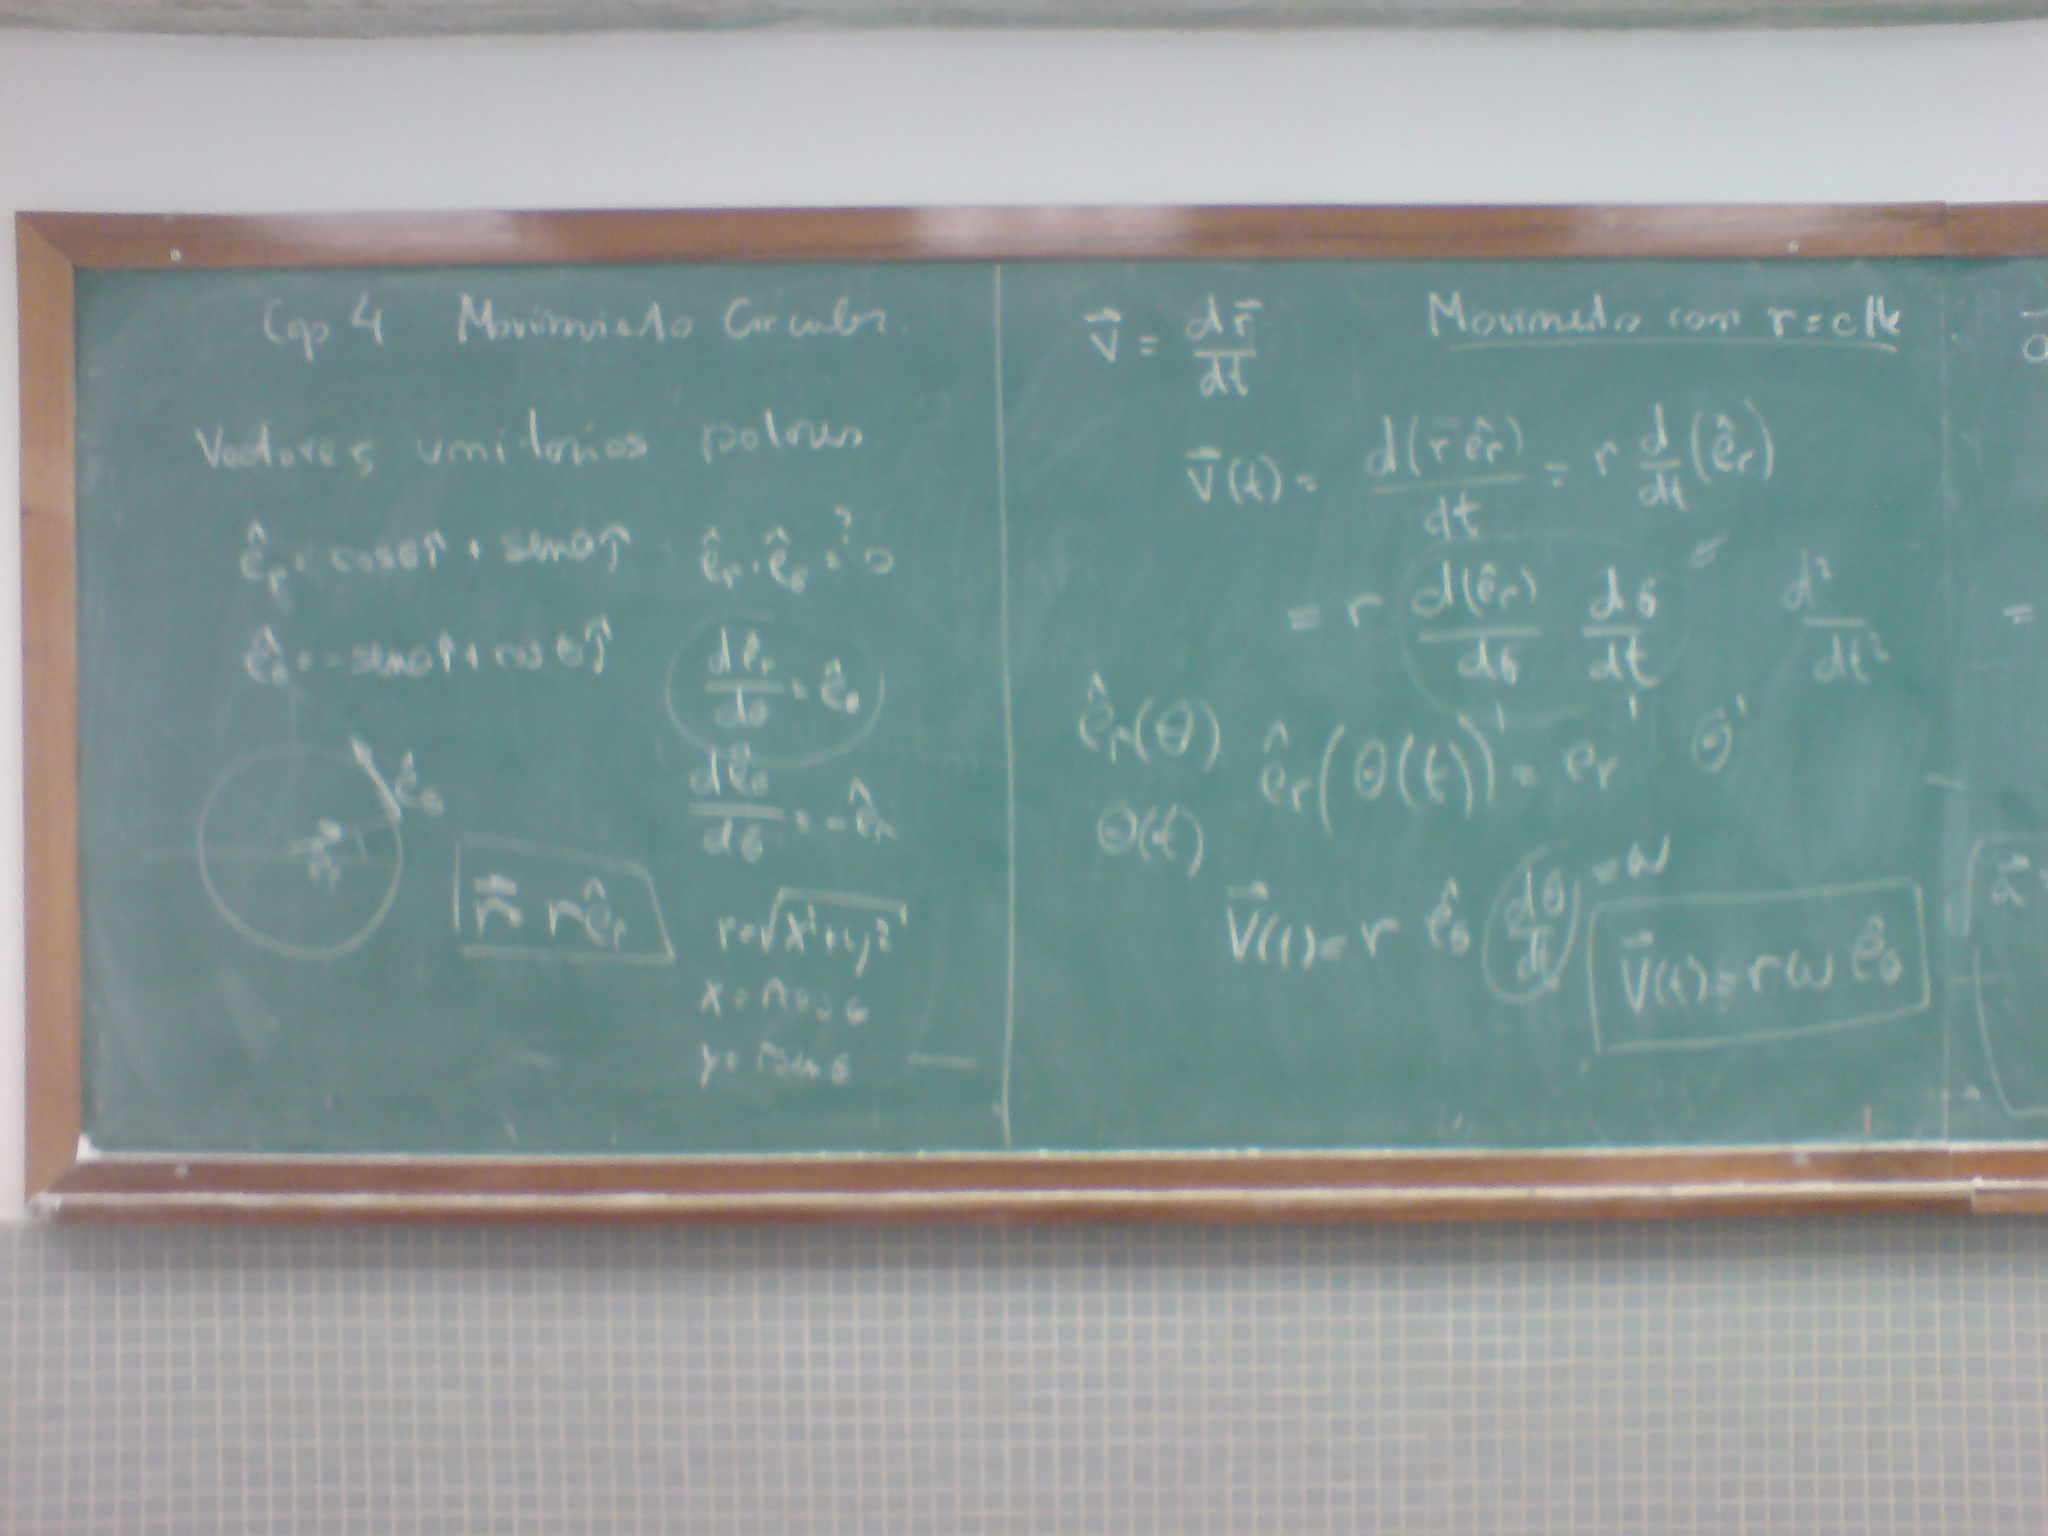 Cap 4 Movimiento Circular.
Vectores unitarios polares
êr = cosθ î + senθ ĵ
êr · êθ =? 0
êθ = -senθ î + cos θ ĵ
dêr/dθ = êθ
dêθ/dθ = -êr
êθ
êr
r⃗ = r êr
r = √x²+y²
x = r cos θ
y = r sen θ
v⃗ = dr⃗/dt
Movimento com r = cte
v⃗(t) = d(r êr)/dt = r d/dt (êr)
= r d(êr)/dθ dθ/dt
d²/dt²
êr(θ) êr(θ(t))' = er' θ'
θ(t)
v⃗(t) = r êθ dθ/dt = ω
v⃗(t) = r ω êθ
a⃗
=
a⃗